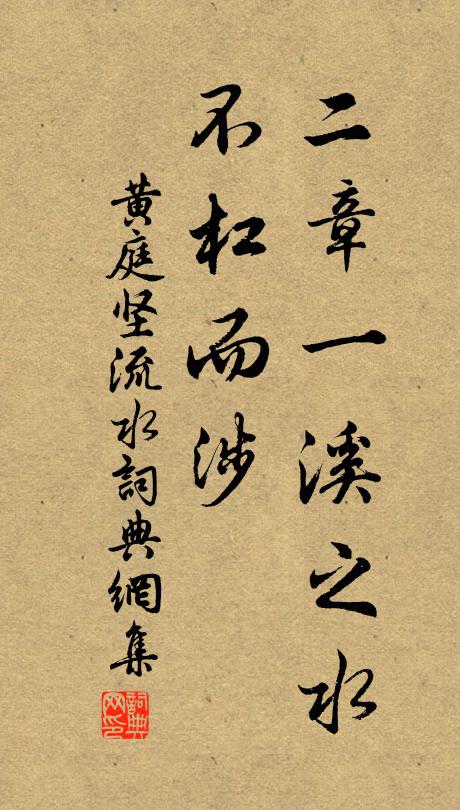 二章一溪之水
不杠而涉
黄庭坚流水詞典網集
詞典网印